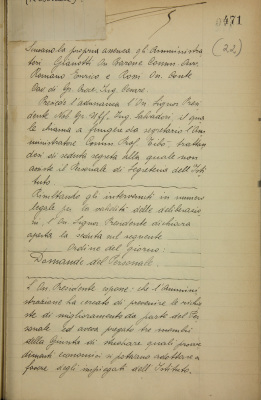 471
(22)
la propria assenza gli Amministra
tori Gianotti On. Barone Comm. Avv.
Romano Enrico e Rossi On. Conte
Cav. di Gr. Croce Ing. Cesare.
Presiede l'adunanza l'On. Signor Presi
dente Ing. Salvadori, il qua
le chiama a fungere da segretario l'Am
ministratore Comm. Prof. trattan
dosi di seduta segreta alla quale non
assiste il Personale di Segreteria dell'Isti
tuto.
Risultando gli intervenuti in numero
legale per la validità delle deliberazio
ni, l'On. Signor Presidente dichiara
aperta la seduta col seguente
Ordine del giorno:
Domande del Personale
L'On. Presidente espone: che l'Ammini
strazione ha cercato di prevenire le richie
ste di miglioramento da parte del Per
sonale ed aveva pregato tre membri
della Giunta di studiare quali provve
dimenti economici si potevano adottare a
favore degli impiegati dell'Istituto.